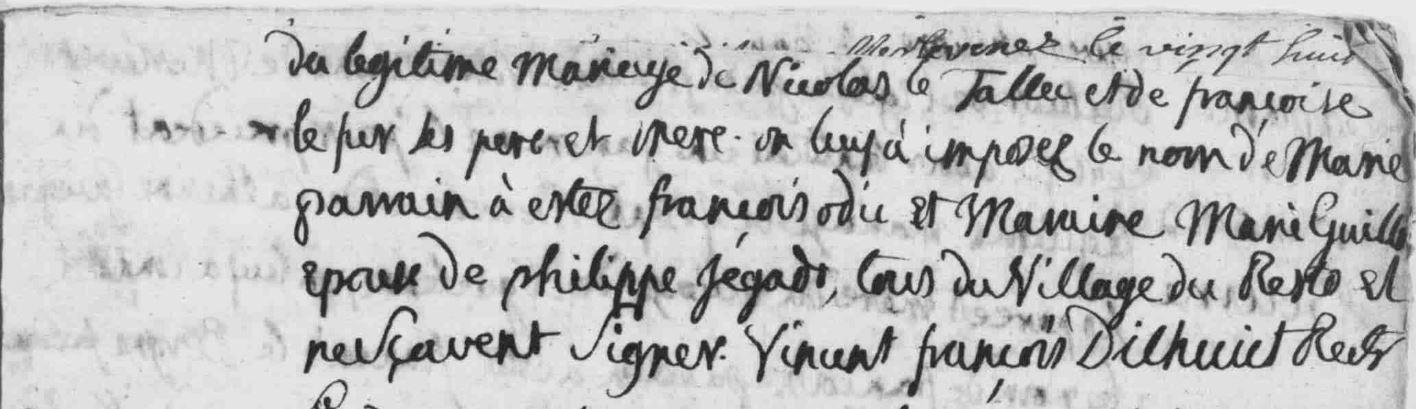 Kervener le vingt huit
du legitime Mariage de Nicolas le Tallec et de françoise
le fur ses pere et mere. on luy à imposez le nom dé Marie
parrain à estez françois odic et Maraine Marie Guillo
Epouse de philippe Jégado, tous du Village du Resto et
ne sçavent signer. Vincent françois Dilhuict Rectr